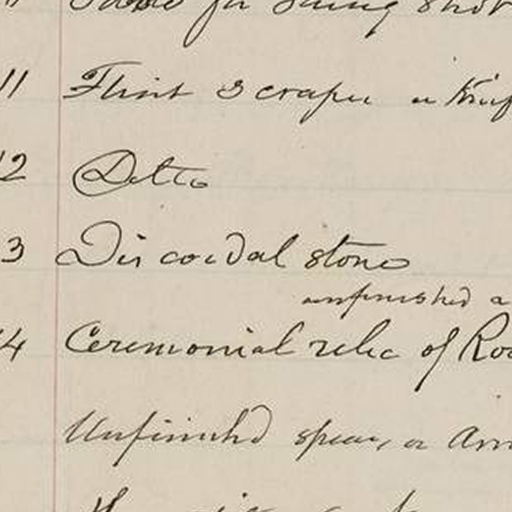 for
11 Flint Scraper or Knif
12 Ditto
3 Discoidal stone
unfinished a
14 Ceremonial relic of Ro
Unfinished spear, or Arr